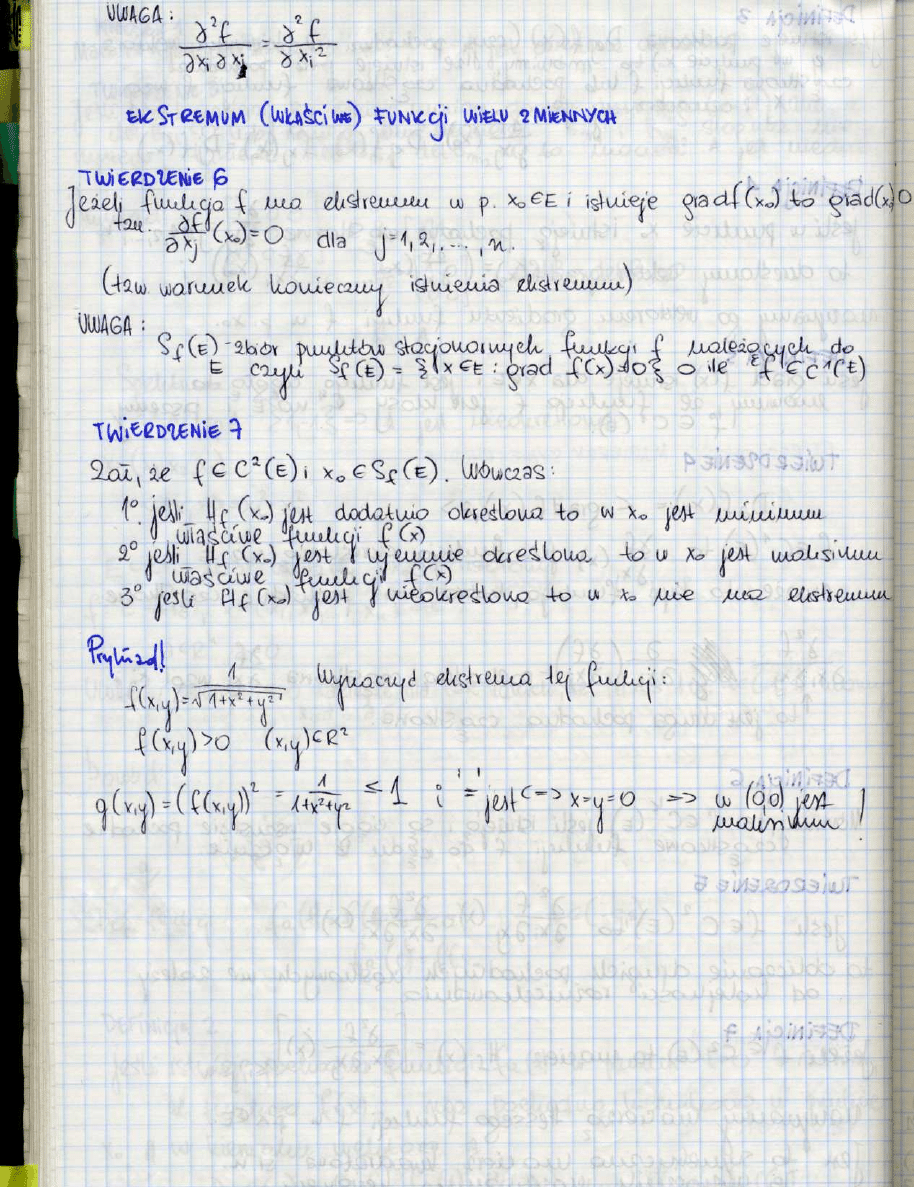 UWAGA:
∂²f/∂xi∂xj = ∂²f/∂xi²
EKSTREMUM (WŁAŚCIWE) FUNKCJI WIELU ZMIENNYCH
TWIERDZENIE 6
Jeżeli funkcja f ma ekstremum w p. x₀∈E i istnieje gradf(x₀) to grad(x₀)0
tzn. ∂f/∂xj (x₀)=0 dla j=1,2,...,n.
(tzw. warunek konieczny istnienia ekstremum)
UWAGA:
Sf(E)-zbiór punktów stacjonarnych funkcji f należących do
E czyli Sf(E) = {x∈E: grad f(x)=0} o ile f∈C¹(E)
TWIERDZENIE 7
Zał, że f∈C²(E) i x₀∈Sf(E). Wówczas:
1° jeśli Hf(x₀) jest dodatnio określona to w x₀ jest minimum
właściwe funkcji f(x)
2° jeśli Hf(x₀) jest ujemnie określona to w x₀ jest maksimum
właściwe funkcji f(x)
3° jeśli Hf(x₀) jest nieokreślona to w x₀ nie ma ekstremum
Przykład!
f(x,y)=1/√(1+x²+y²) Wyznaczyć ekstrema tej funkcji:
f(x,y)>0 (x,y)∈R²
g(x,y)=(f(x,y))² = 1/(1+x²+y²) ≤ 1 i '=' jest <=> x=y=0 => w (0,0) jest
maksimum!